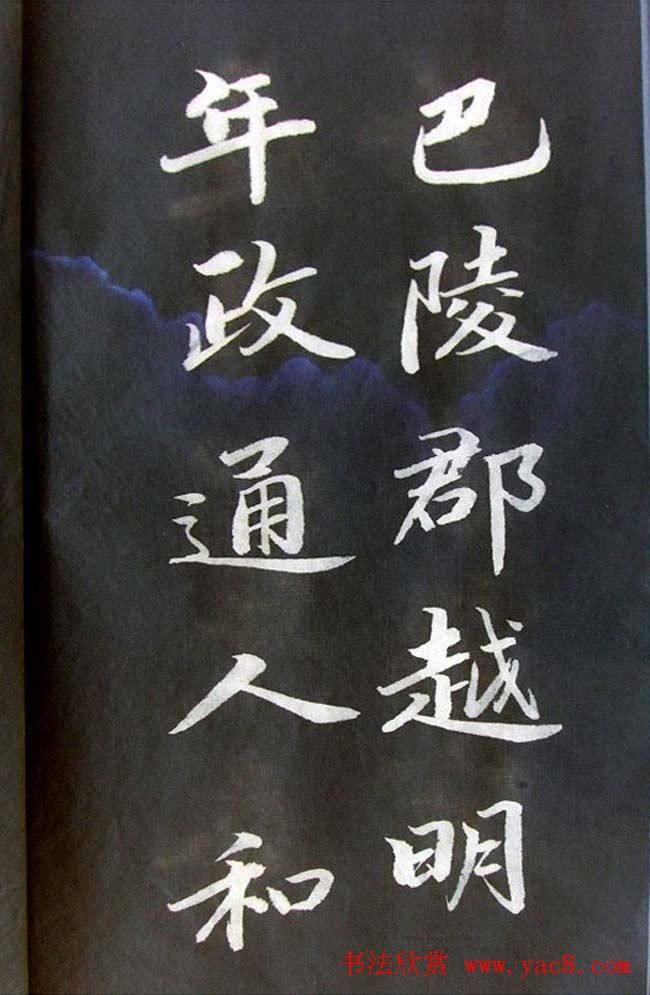 巴陵郡越明
年政通人和
书法欣赏 www.yac8.com